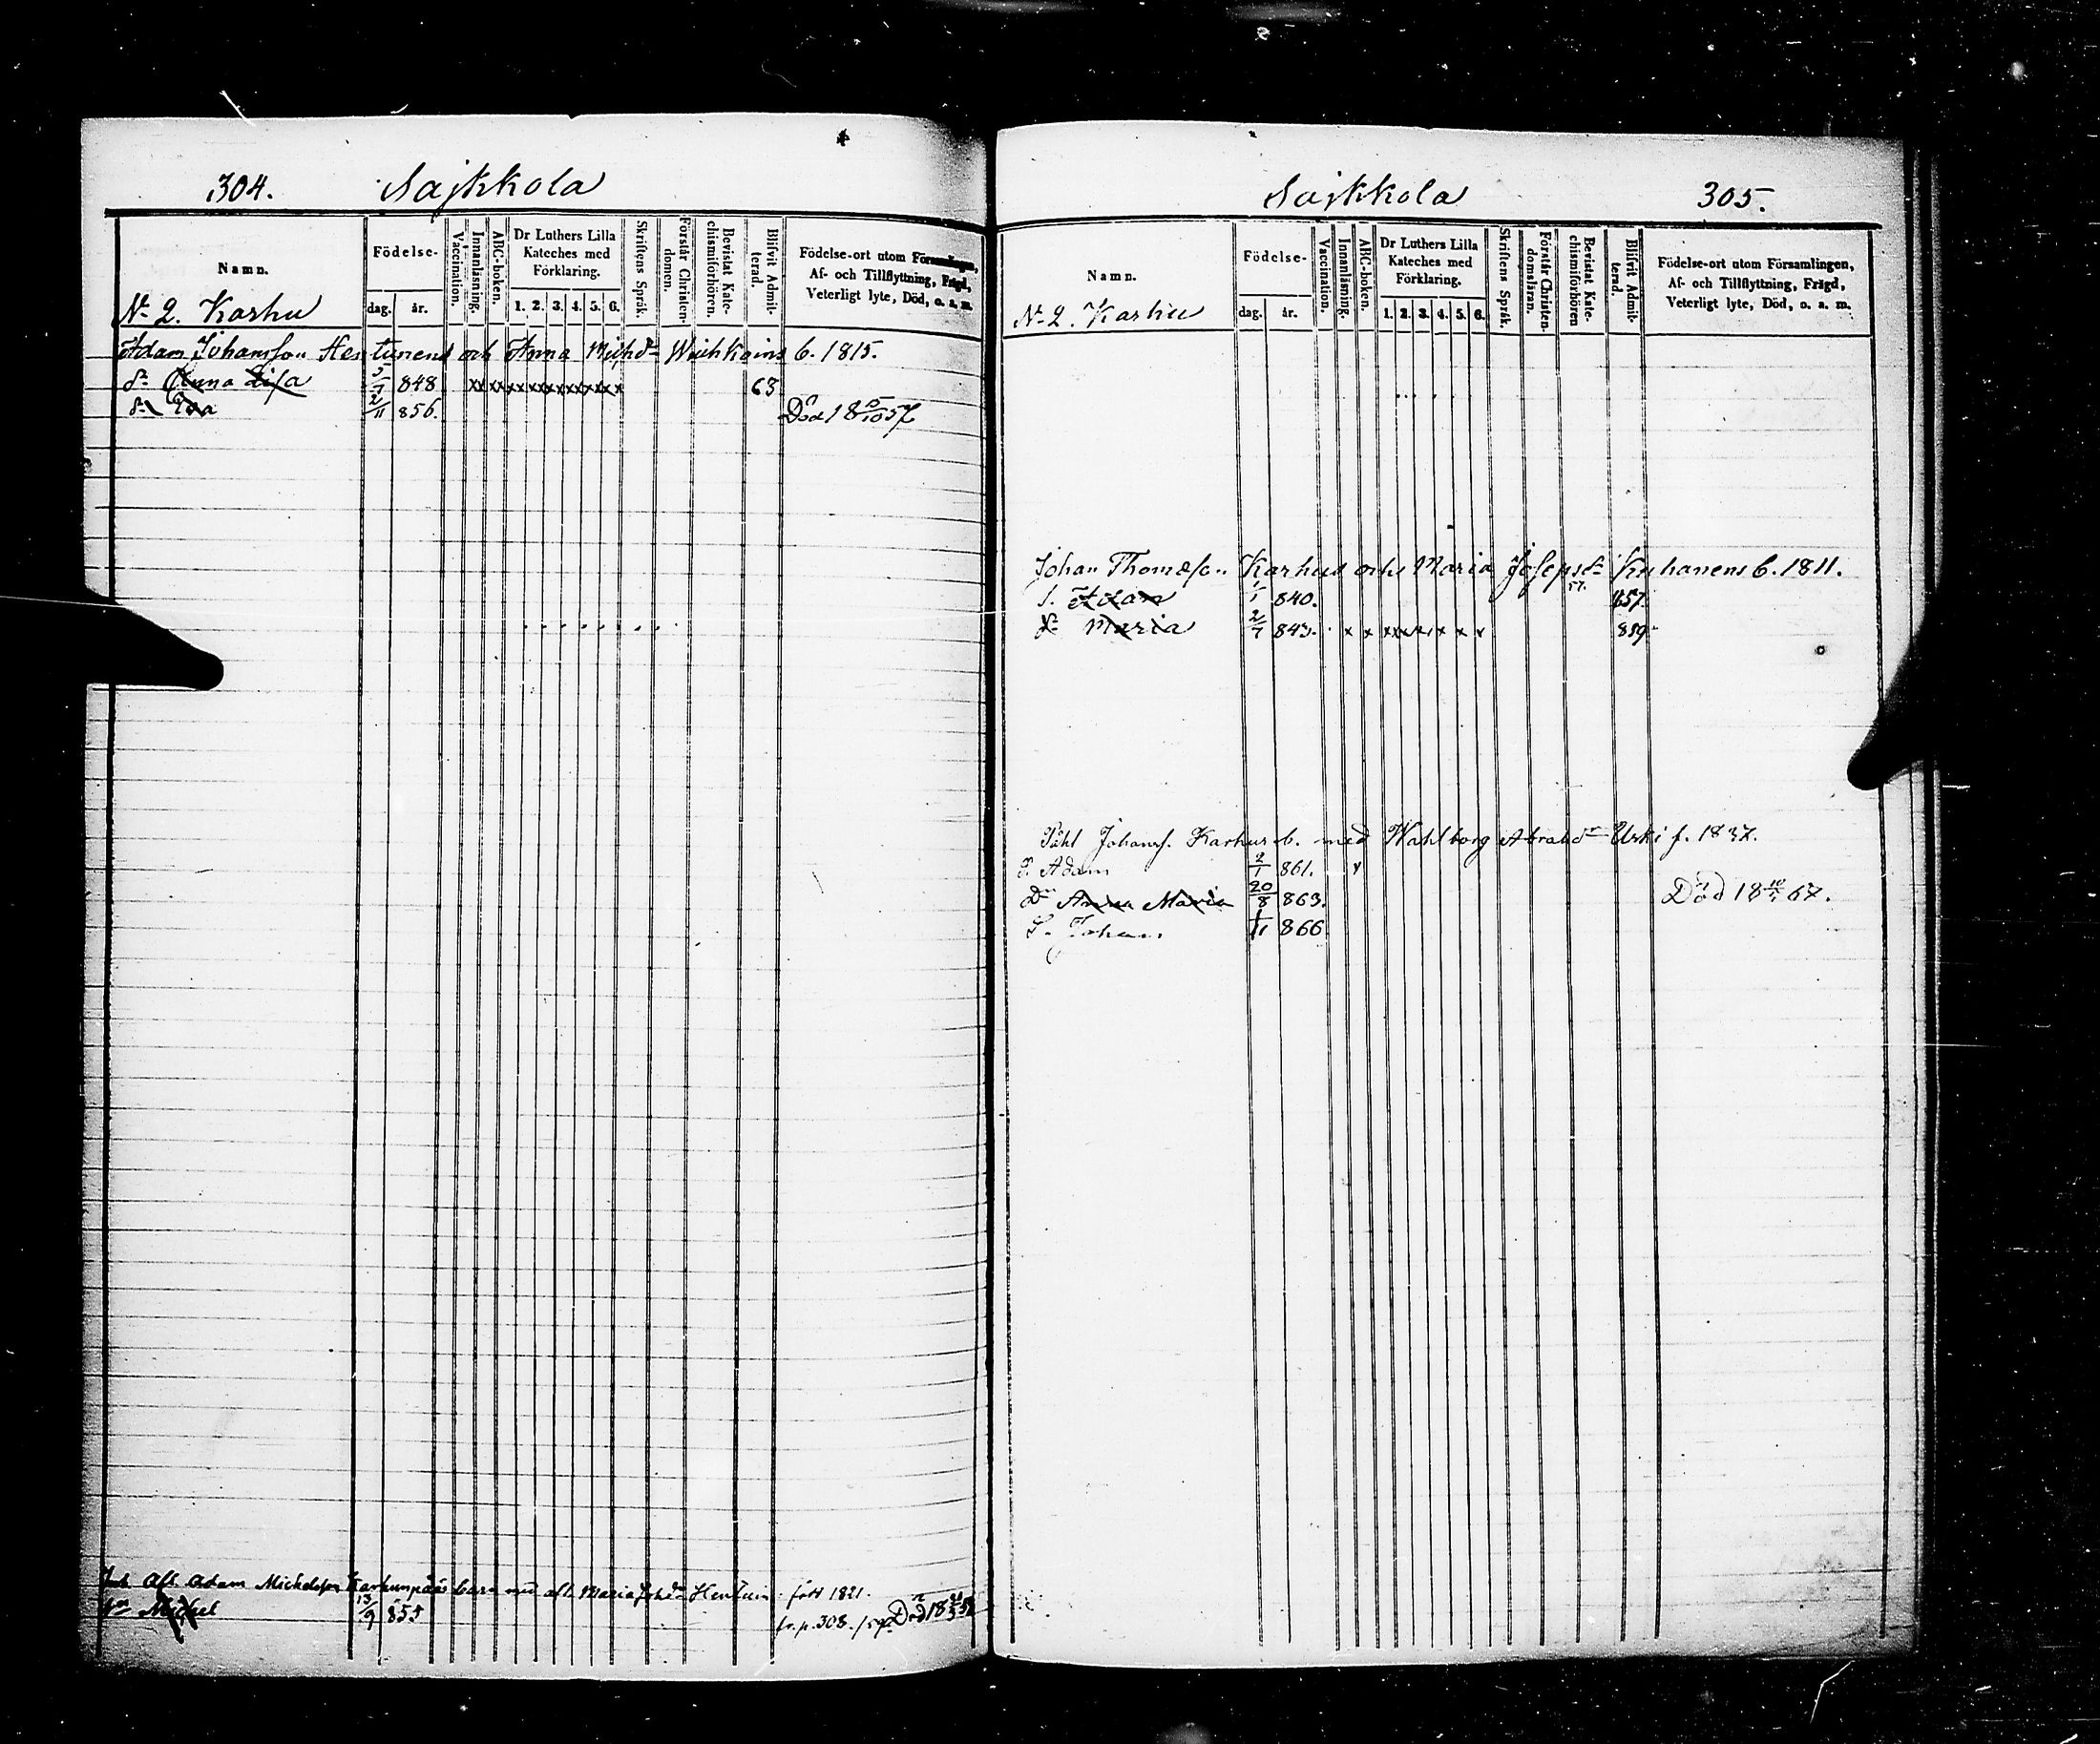 304. Sajkkola
Namn.
Födelse-
dag. år.
Vaccination.
Innanläsning.
ABC-boken.
Dr Luthers Lilla
Kateches med
Förklaring.
1. 2. 3. 4. 5. 6.
Skriftens Språk.
Förstår Christen-
domen.
Bevistat Kate-
chismiförhören.
Blifvit Admit-
terad.
Födelse-ort utom Församlingen,
Af- och Tillflyttning, Frägd,
Veterligt lyte, Död, o. a. m.
No 2. Karhu
Adam Johansson Hentunens och Anna Michdr b. 1815.
dr Anna Lisa 5/7 848 xx xx xx xx xx xx x x x 63
dr Eva 2/11 856. Död 18 15/10 57
Adam Michelsson Karhunpääs barn med afl. Maria Hentuin född 1821.
Michel 13/9 855 fr. p. 308. Död 18
Sajkkola 305.
Namn.
Födelse-
dag. år.
Vaccination.
Innanläsning.
ABC-boken.
Dr Luthers Lilla
Kateches med
Förklaring.
1. 2. 3. 4. 5. 6.
Skriftens Språk.
Förstår Christen-
domsläran.
Bevistat Kate-
chismiförhören
Blifvit Admit-
terad.
Födelse-ort utom Församlingen,
Af- och Tillflyttning, Frägd,
Veterligt lyte, Död, o. a. m.
No 2. Karhu
Johan Thomæson Karhus och Maria Josepsdr Kuhanens b. 1811.
57.
s. Adam 1/1 840. 857.
dr Maria 2/7 843. x x x x x x x x 859
Påhl Johanss. Karhus b. med Wahlborg Abrahdr Uski f. 1837.
S. Adam 2/1 861.
Dr Anna Maria 20/8 863. Död 18 67.
S. Johan 1/11 866